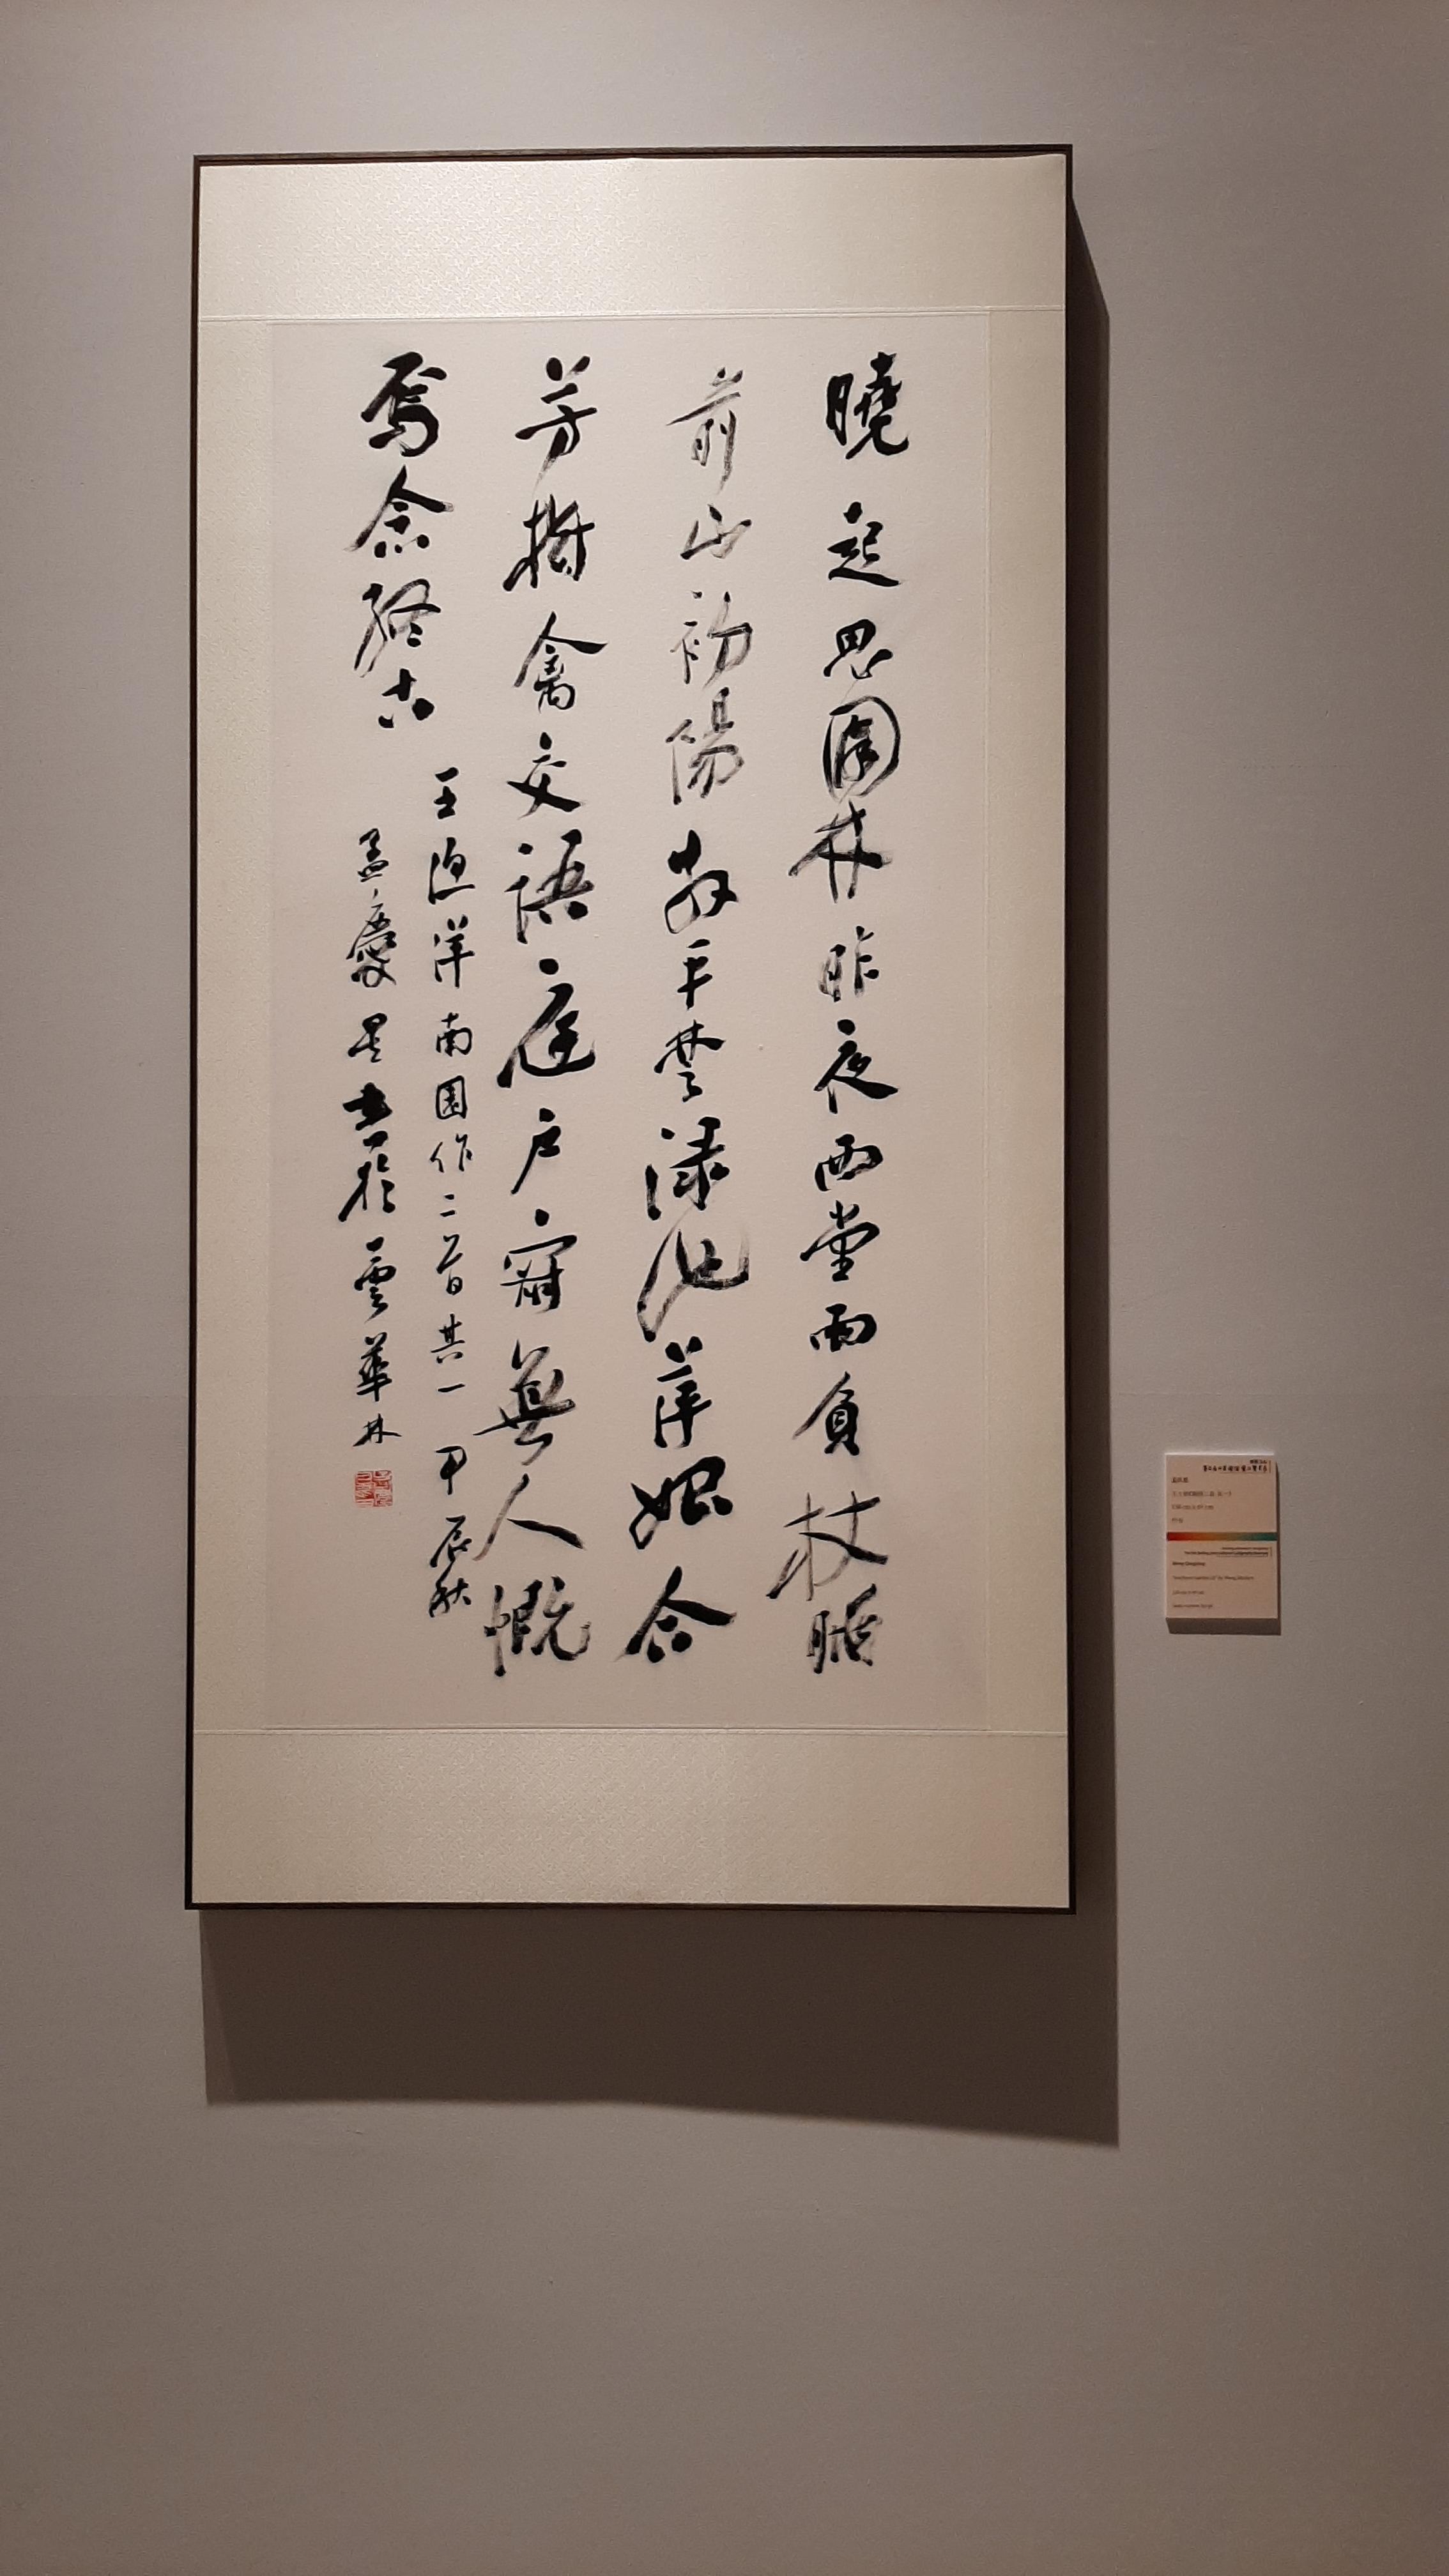 曉起思園林昨夜西堂雨負杖晤
前山初陽散平楚渌池萍始合
芳樹禽交語庭戶寂無人慨
焉念終古
王漁洋南園作二首其一 甲辰秋
孟慶星書於雲華林